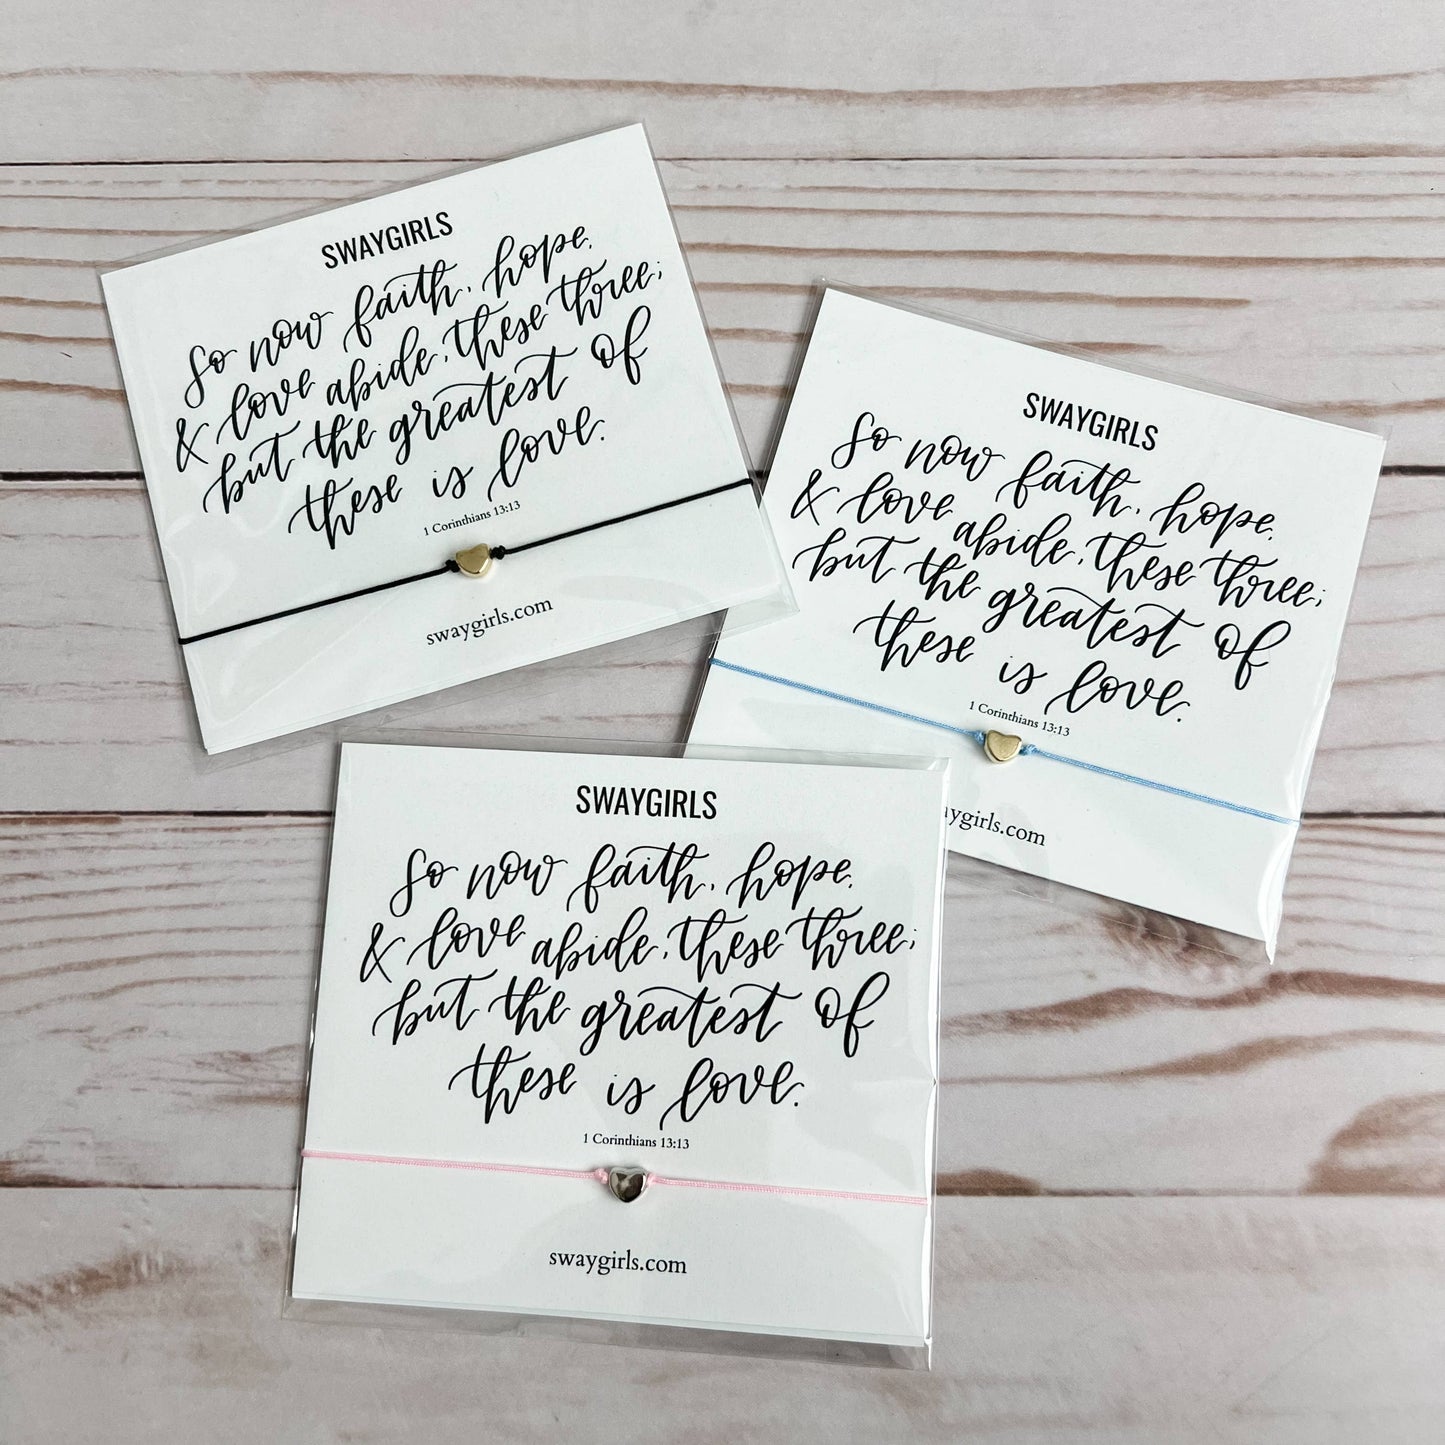 SWAYGIRLS
So now faith, hope,
& love abide, these three;
but the greatest of
these is love.
1 Corinthians 13:13
swaygirls.com
SWAYGIRLS
So now faith, hope,
& love abide, these three;
but the greatest of
these is love.
1 Corinthians 13:13
ygirls.com
SWAYGIRLS
So now faith, hope,
& love abide, these three;
but the greatest of
these is love.
1 Corinthians 13:13
swaygirls.com